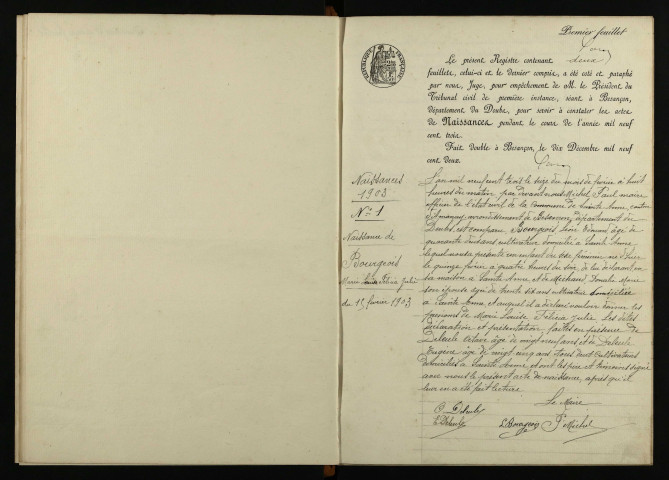 Premier feuillet
Le présent Registre contenant deux
feuillets, celui-ci et le dernier compris, a été coté et paraphé
par nous, Juge, pour empêchement de M. le Président du
Tribunal civil de première instance, séant à Besançon,
département du Doubs, pour servir à constater les actes
de Naissances pendant le cours de l'année mil neuf
cent trois.
Fait double à Besançon, le dix Décembre mil neuf
cent deux.
RÉPUBLIQUE FRANÇAISE
Naissances
1903
N° 1
Naissance de
Bourgeois
Marie Louise Félicia Julie
du 15 février 1903
L'an mil neuf cent trois le seize du mois de février à huit
heures du matin par devant nous Michel Paul maire
officier de l'état civil de la commune de Sainte Anne, canton
d'Amancey arrondissement de Besançon, département du
Doubs, est comparu Bourgeois Léon âgé de
quarante ans cultivateur domicilié à Sainte Anne
lequel nous a présenté un enfant du sexe féminin né
le quinze février à quatre heures du soir, de lui déclarant en
sa maison à Sainte Anne et de
son épouse âgée de trente six ans cultivatrice domiciliée
à Sainte Anne et auquel il a déclaré vouloir donner les
prénoms de Marie Louise Félicia Julie. Les dites
déclaration et présentation faites en présence de
Deleule Octave âgé de vingt neuf ans et de Deleule
Eugène âgé de vingt cinq ans tous deux cultivateurs
domiciliés à Sainte Anne et ont les père et témoins signé
avec nous le présent acte de naissance, après qu'il
leur en a été fait lecture.
Le Maire
O Deleule
E Deleule L Bourgeois P Michel